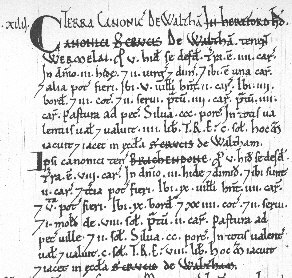 TERRA CANONIC' DE Walthā. In hertford hd.
CANONICI S CRUCIS De Walthā. tenent
WERMELAI. p v. hid se defd. Tra ē. viii. car.
In dnio. iii. hidæ 7 ii. uirg 7 dim. 7 ibi ē una car.
7 alia pot fieri. Ibi. v. uilli hnt. ii. car. Ibi. iii.
bord. 7 ii. cot. 7 ii. serui. ptū. iii. car. ptū. iiii.
car. Pastura ad pec. Silua. ccc. porc. In totis ua
lentijs ual 7 ualuit. iii. lib. T.R.E. c. sol. hoc m
iacuit 7 iacet in eccla S CRUCIS de Waltham.
Ipsi canonici ten BRICHENDONE. p v. hid se defd.
Tra ē. viii. car. In dnio. iii. hidæ 7 dimid. 7 ibi sunt
ii. car. 7 pot fieri. Ibi. uilli hnt. car.
7 v. pot fieri. Ibi. bord. 7 cot. 7 serui.
7 molin de. viii. sol. ptū. ii. car. Pastura ad
pec uille. 7 ii. sol. Silua. cc. porc. In totis ualent
ual 7 ualuit. c. sol. T.R.E. viii. lib. hoc m iacuit
7 iacet in eccla S CRUCIS de